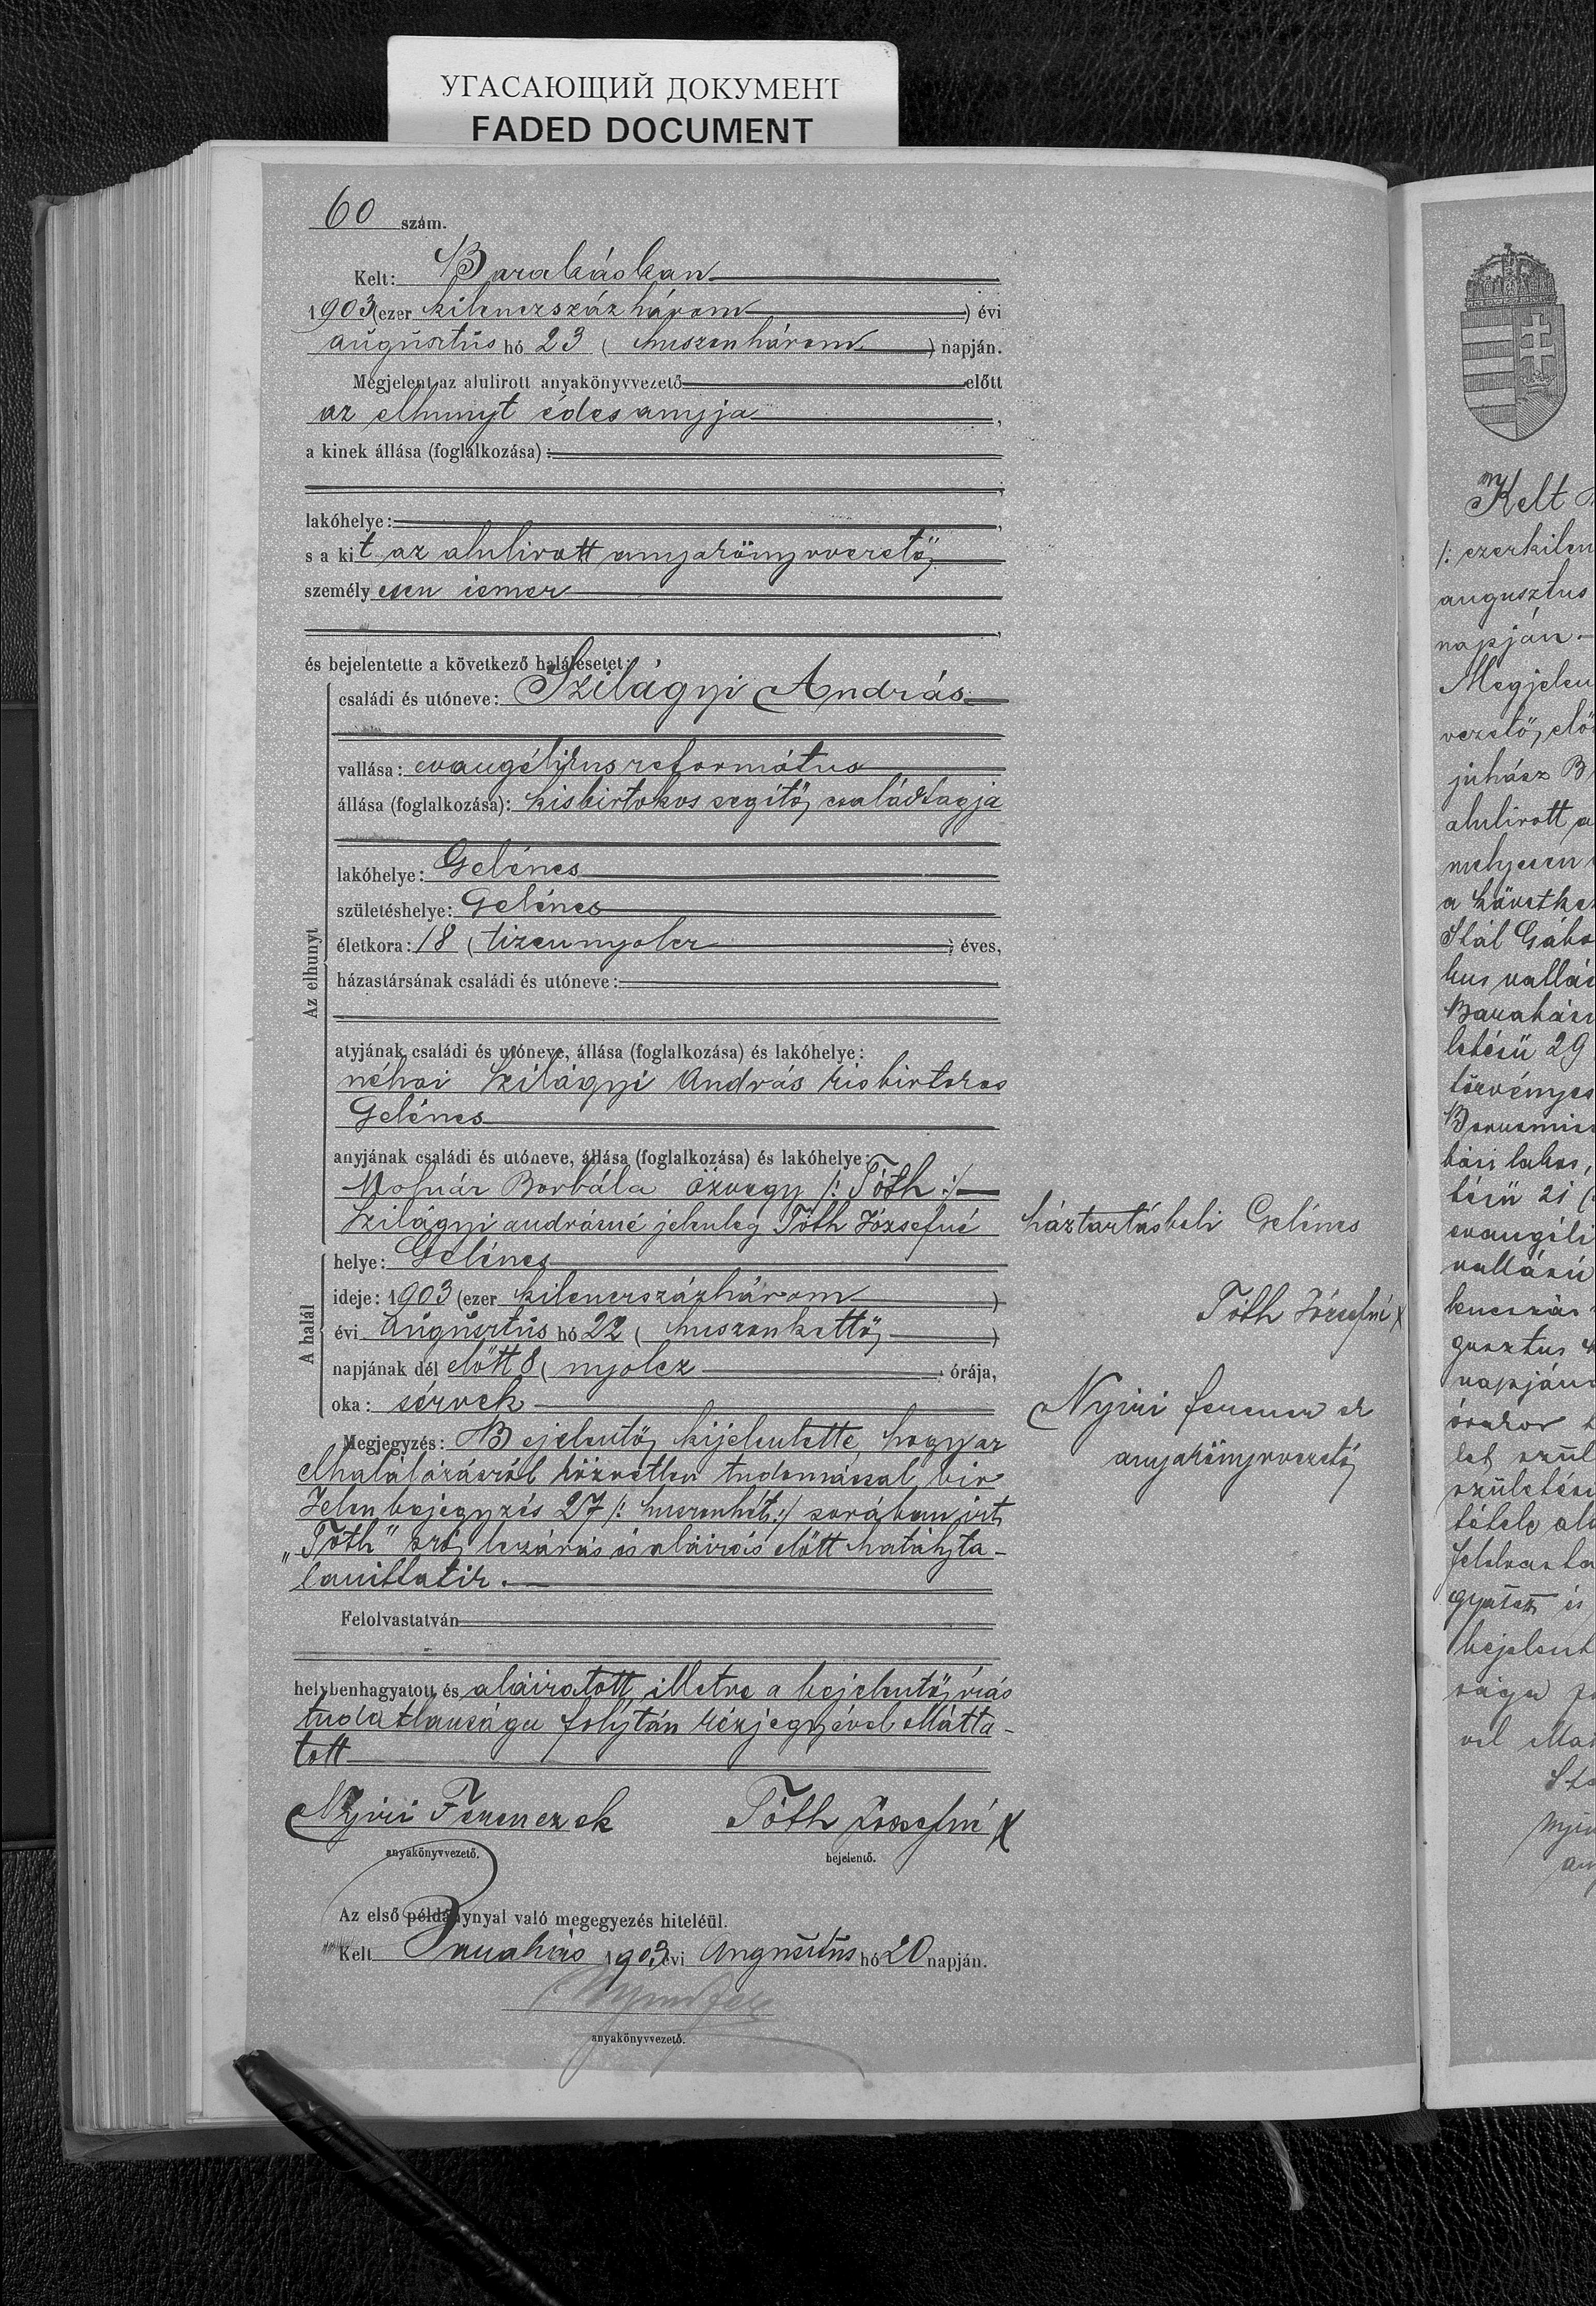 УГАСАЮЩИЙ ДОКУМЕНТ
FADED DOCUMENT
60 szám.
Kelt: Barabásban
1903 (ezer kilenczszáz három) évi
augusztus hó 23 (huszonhárom) napján.
Megjelent az alulirott anyakönyvvezető előtt
az elhunyt édesanyja,
a kinek állása (foglalkozása):
lakóhelye:
s a kit az alulirott anyakönyvvezető,
személyesen ismer
és bejelentette a következő halálesetet:
Az elhunyt
családi és utóneve: Szilágyi András
vallása: evangélikus református
állása (foglalkozása): kisbirtokos segítő családtagja
lakóhelye: Gelénes
születéshelye: Gelénes
életkora: 18 (tizennyolcz) éves,
házastársának családi és utóneve:
atyjának családi és utóneve, állása (foglalkozása) és lakóhelye:
néhai Szilágyi András kisbirtokos
Gelénes
anyjának családi és utóneve, állása (foglalkozása) és lakóhelye:
Molnár Borbála özvegy /: Tóth :/
Szilágyi andrásné jelenleg Tóth Józsefné háztartásbeli Gelénes
A halál
helye: Gelénes
ideje: 1903 (ezer kilenczszázhárom)
évi augusztus hó 22 (huszonkettő)
napjának dél előtt 8 (nyolcz) órája,
oka: sérvek
Tóth Józsefné X
Nyiri ferencz ek
anyakönyvvezető
Megjegyzés: Bejelentő kijelentette, hogy az
elhalálozásról közvetlen tudomással bir
Jelen bejegyzés 27 /: huszonhét :/ sorában irt
„Tóth" szó lezárás és aláirás előtt hatályta-
lanittatik.
Felolvastatván
helybenhagyatott és aláiratott, illetve a bejelentő irás
tudatlansága folytán kézjegyével ellátta-
tott
Nyiri Ferencz ek Tóth Józsefné X
anyakönyvvezető. bejelentő.
Az első példánynyal való megegyezés hiteléül.
Kelt Barabás 1903 évi Augusztus hó 20 napján.
anyakönyvvezető.
Kelt
/: ezerkilen
augusztus
napján.
Megjelen
vezető, elő
juhász B
alulirott a
a következ
Barabási
letésü 29
törvényes
bási lakos,
tésü 21 (
vallásu
napján
születési